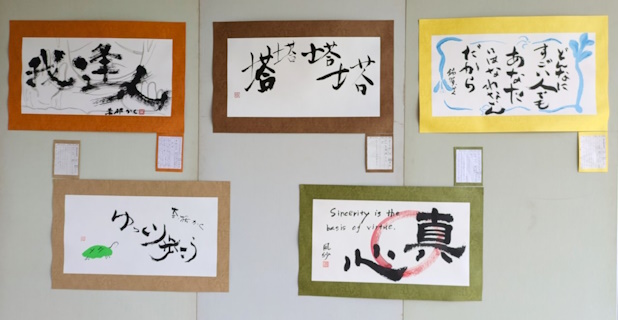 我逢人
塔塔塔塔
どんなに
すごい人でも
あなたに
はなれません
だから
ゆっくり歩こう
Sincerity is the
basis of virtue.
真心